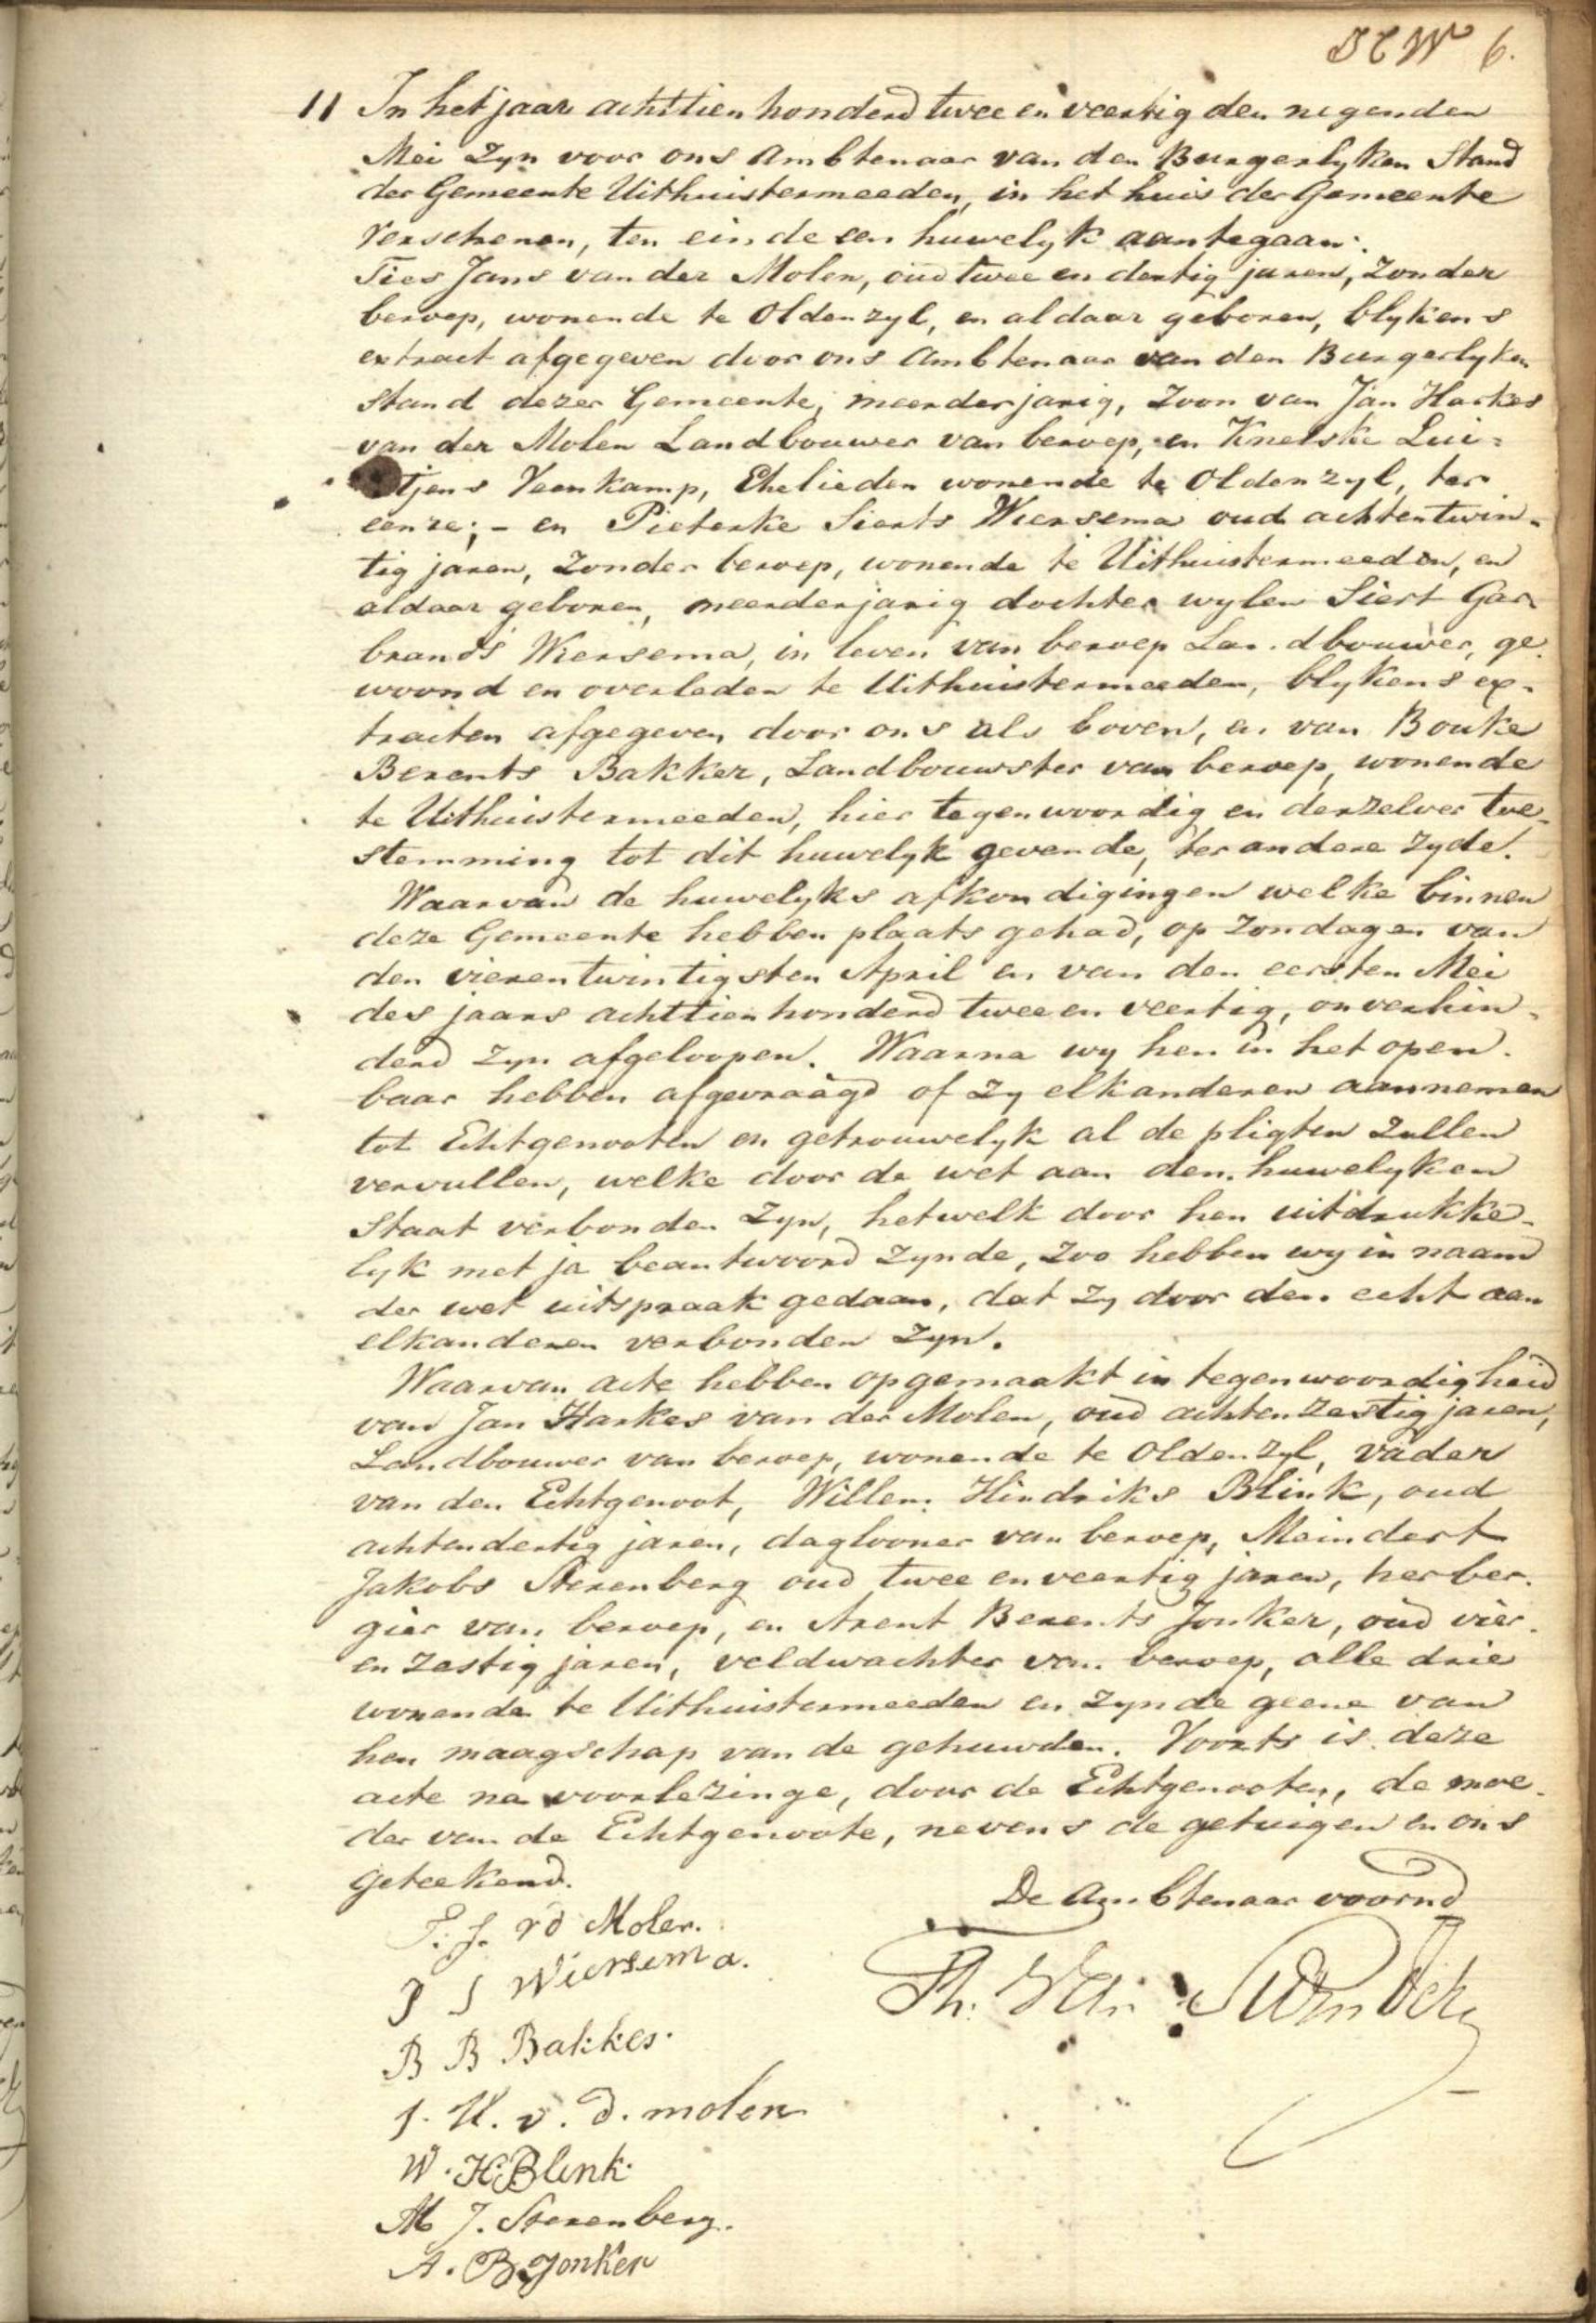 6.
11 In het jaar achttien honderd twee en veertig den negenden
Mei zyn voor ons Ambtenaar van den Burgerlyken Stand
der Gemeente Uithuistermeeden, in het huis der Gemeente
verschenen, ten einde een huwelyk aantegaan:
Ties Jans van der Molen, oud twee en dertig jaren, zonder
beroep, wonende te Oldenzyl, en aldaar geboren, blykens
extract afgegeven door ons Ambtenaar van den Burgerlyken
Stand dezer Gemeente, meerderjarig, Zoon van Jan Harkes
van der Molen Landbouwer van beroep, en Knelske Lui=
tjens Veenkamp, Ehelieden wonende te Oldenzyl, ter
eenre; – en Pieterke Sierts Wiersema oud achtentwin-
tig jaren, zonder beroep, wonende te Uithuistermeeden, en
aldaar geboren, meerderjarig dochter wylen Siert Gar-
brands Wiersema, in leven van beroep Landbouwer, ge-
woond en overleden te Uithuistermeeden, blykens ex-
tracten afgegeven door ons als boven, en van Bouke
Berents Bakker, Landbouwster van beroep, wonende
te Uithuistermeeden, hier tegenwoordig en derzelver toe-
stemming tot dit huwelyk gevende, ter andere zyde.
Waarvan de huwelyks afkondigingen welke binnen
deze Gemeente hebben plaats gehad, op Zondagen van
den vierentwintigsten April en van den eersten Mei
des jaars achttienhonderd twee en veertig, onverhin-
derd zyn afgeloopen. Waarna wy hen in het open-
baar hebben afgevraagd of zy elkanderen aannemen
tot Echtgenooten en getrouwelyk al de pligten zullen
vervullen, welke door de wet aan den huwelyken
Staat verbonden zyn, hetwelk door hen uitdrukke-
lyk met ja beantwoord zynde, zoo hebben wy in naam
der wet uitspraak gedaan, dat zy door den echt aan
elkanderen verbonden zyn.
Waarvan acte hebben opgemaakt in tegenwoordigheid
van Jan Harkes van der Molen, oud achtenzestig jaren,
Landbouwer van beroep, wonende te Oldenzyl, vader
van den Echtgenoot, Willem Hindriks Blink, oud
achtendertig jaren, daglooner van beroep, Meindert
Jakobs Sterenberg oud twee en veertig jaren, herber-
gier van beroep, en Arent Berents Jonker, oud vier-
en zestig jaren, veldwachter van beroep, alle drie
wonende te Uithuistermeeden en zynde geene van
hen maagschap van de gehuwden. Voorts is deze
acte na voorlezinge, door de Echtgenooten, de moe-
der van de Echtgenoote, nevens de getuigen en ons
geteekend.
De Ambtenaar voornd
T. J. vd Molen.
P S Wiersema.
B B Bakker.
J. H. v. d. molen
W. H. Blink.
M J. Sterenberg.
A. B Jonker